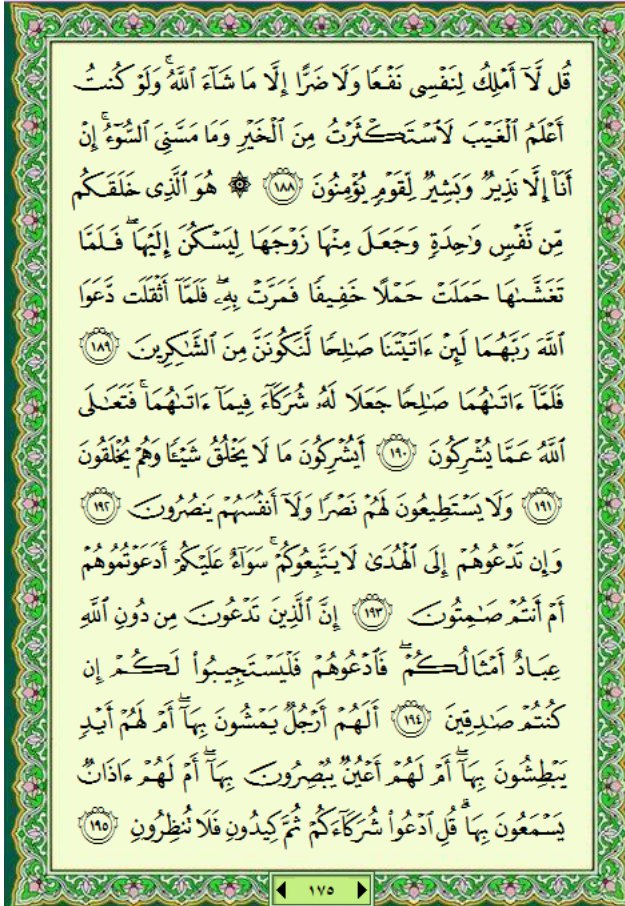 قُل لَّآ أَمْلِكُ لِنَفْسِى نَفْعًا وَلَا ضَرًّا إِلَّا مَا شَآءَ ٱللَّهُ ۚ وَلَوْ كُنتُ
أَعْلَمُ ٱلْغَيْبَ لَٱسْتَكْثَرْتُ مِنَ ٱلْخَيْرِ وَمَا مَسَّنِىَ ٱلسُّوٓءُ ۚ إِنْ
أَنَا۠ إِلَّا نَذِيرٌ وَبَشِيرٌ لِّقَوْمٍ يُؤْمِنُونَ ﴿١٨٨﴾ ۞ هُوَ ٱلَّذِى خَلَقَكُم
مِّن نَّفْسٍ وَٰحِدَةٍ وَجَعَلَ مِنْهَا زَوْجَهَا لِيَسْكُنَ إِلَيْهَا ۖ فَلَمَّا
تَغَشَّىٰهَا حَمَلَتْ حَمْلًا خَفِيفًا فَمَرَّتْ بِهِۦ ۖ فَلَمَّآ أَثْقَلَت دَّعَوَا
ٱللَّهَ رَبَّهُمَا لَئِنْ ءَاتَيْتَنَا صَٰلِحًا لَّنَكُونَنَّ مِنَ ٱلشَّٰكِرِينَ ﴿١٨٩﴾
فَلَمَّآ ءَاتَىٰهُمَا صَٰلِحًا جَعَلَا لَهُۥ شُرَكَآءَ فِيمَآ ءَاتَىٰهُمَا ۚ فَتَعَٰلَى
ٱللَّهُ عَمَّا يُشْرِكُونَ ﴿١٩٠﴾ أَيُشْرِكُونَ مَا لَا يَخْلُقُ شَيْـًٔا وَهُمْ يُخْلَقُونَ
﴿١٩١﴾ وَلَا يَسْتَطِيعُونَ لَهُمْ نَصْرًا وَلَآ أَنفُسَهُمْ يَنصُرُونَ ﴿١٩٢﴾
وَإِن تَدْعُوهُمْ إِلَى ٱلْهُدَىٰ لَا يَتَّبِعُوكُمْ ۚ سَوَآءٌ عَلَيْكُمْ أَدَعَوْتُمُوهُمْ
أَمْ أَنتُمْ صَٰمِتُونَ ﴿١٩٣﴾ إِنَّ ٱلَّذِينَ تَدْعُونَ مِن دُونِ ٱللَّهِ
عِبَادٌ أَمْثَالُكُمْ ۖ فَٱدْعُوهُمْ فَلْيَسْتَجِيبُوا۟ لَكُمْ إِن
كُنتُمْ صَٰدِقِينَ ﴿١٩٤﴾ أَلَهُمْ أَرْجُلٌ يَمْشُونَ بِهَآ ۖ أَمْ لَهُمْ أَيْدٍ
يَبْطِشُونَ بِهَآ ۖ أَمْ لَهُمْ أَعْيُنٌ يُبْصِرُونَ بِهَآ ۖ أَمْ لَهُمْ ءَاذَانٌ
يَسْمَعُونَ بِهَا ۗ قُلِ ٱدْعُوا۟ شُرَكَآءَكُمْ ثُمَّ كِيدُونِ فَلَا تُنظِرُونِ ﴿١٩٥﴾
١٧٥